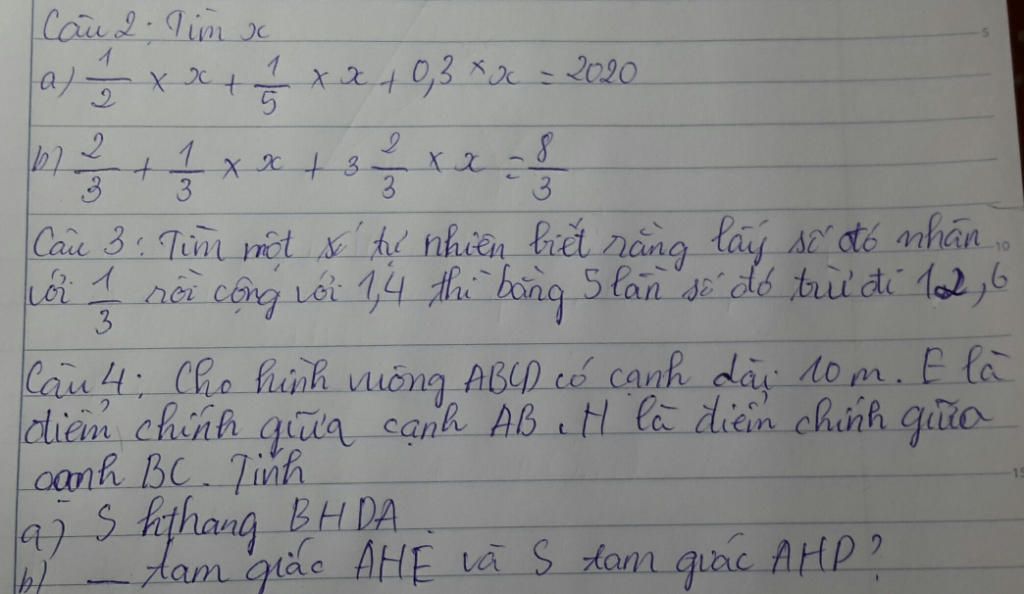 Câu 2: Tìm x
a) 1/2 × x + 1/5 × x + 0,3 × x = 2020
b) 2/3 + 1/3 × x + 3 2/3 × x = 8/3
Câu 3: Tìm một số tự nhiên biết rằng lấy số đó nhân
với 1/3 rồi cộng với 1,4 thì bằng 5 lần số đó trừ đi 12,6
Câu 4: Cho hình vuông ABCD có cạnh dài 10 m. E là
điểm chính giữa cạnh AB. H là điểm chính giữa
cạnh BC. Tính
a) S hthang BHDA.
b) — tam giác AHE và S tam giác AHD?